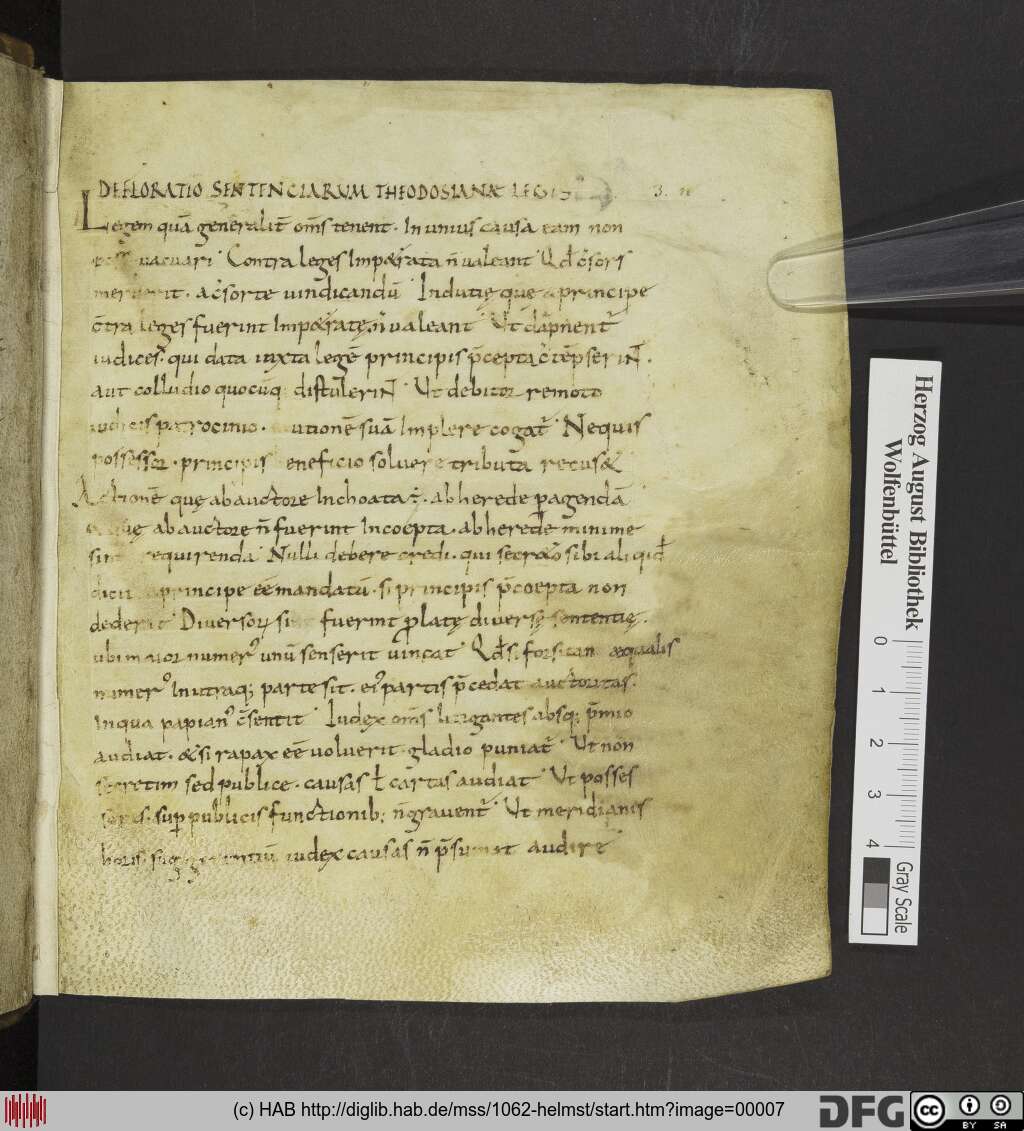 DEFLORATIO SENTENCIARUM THEODOSIANAE LEGIS 3.
Legem quā generalit̄ om̄s tenent. In unius causa eam non
vacuari. Contra leges Impetrata n̄ valeant. Qd̄ c̄sors
meruerit. a c̄sorte vindicandū. Indutię quę a principe
c̄tra leges fuerint Impetratę n̄ valeant. Ut dāpnent̄
iudices. qui data iuxta legē principis p̄cepta c̄tēpserinт.
aut colludio quocūq; distulerinт. Ut debitor remoto
iudicis patrocinio. utionē suā Implere cogat̄. Nequis
possessor. principis eneficio solvere tributa recuset
Actionē quę ab auctore Inchoata ē. ab herede pagendā
ę ab auctore n̄ fuerint Incoepta. ab herede minime
sint requirenda. Nulli debere credi. qui secreto sibi aliqid
a principe eē mandatū. si principis p̄coepta non
dederit. Diversoꝝ si fuerint platę diversę sententię.
ubi maior numer' unū senserit vincat. Qd̄ si forsitan aequalis
numer' In utraq; parte sit. ei' partis p̄cedat auctoritas.
In qua papian' c̄sentit. Iudex om̄s litigantes absq; p̄mio
audiat. & si rapax eē voluerit. gladio puniat̄. Ut non
secretim sed publice. causas ł cartas audiat. Ut posses
sores. sup publicis functionib; n̄ gravent̄. Ut meridianis
horis. iudex causas n̄ p̄sumat audire
Herzog August Bibliothek
Wolfenbüttel
0 1 2 3 4
Gray Scale
(c) HAB http://diglib.hab.de/mss/1062-helmst/start.htm?image=00007
DFG
cc BY SA